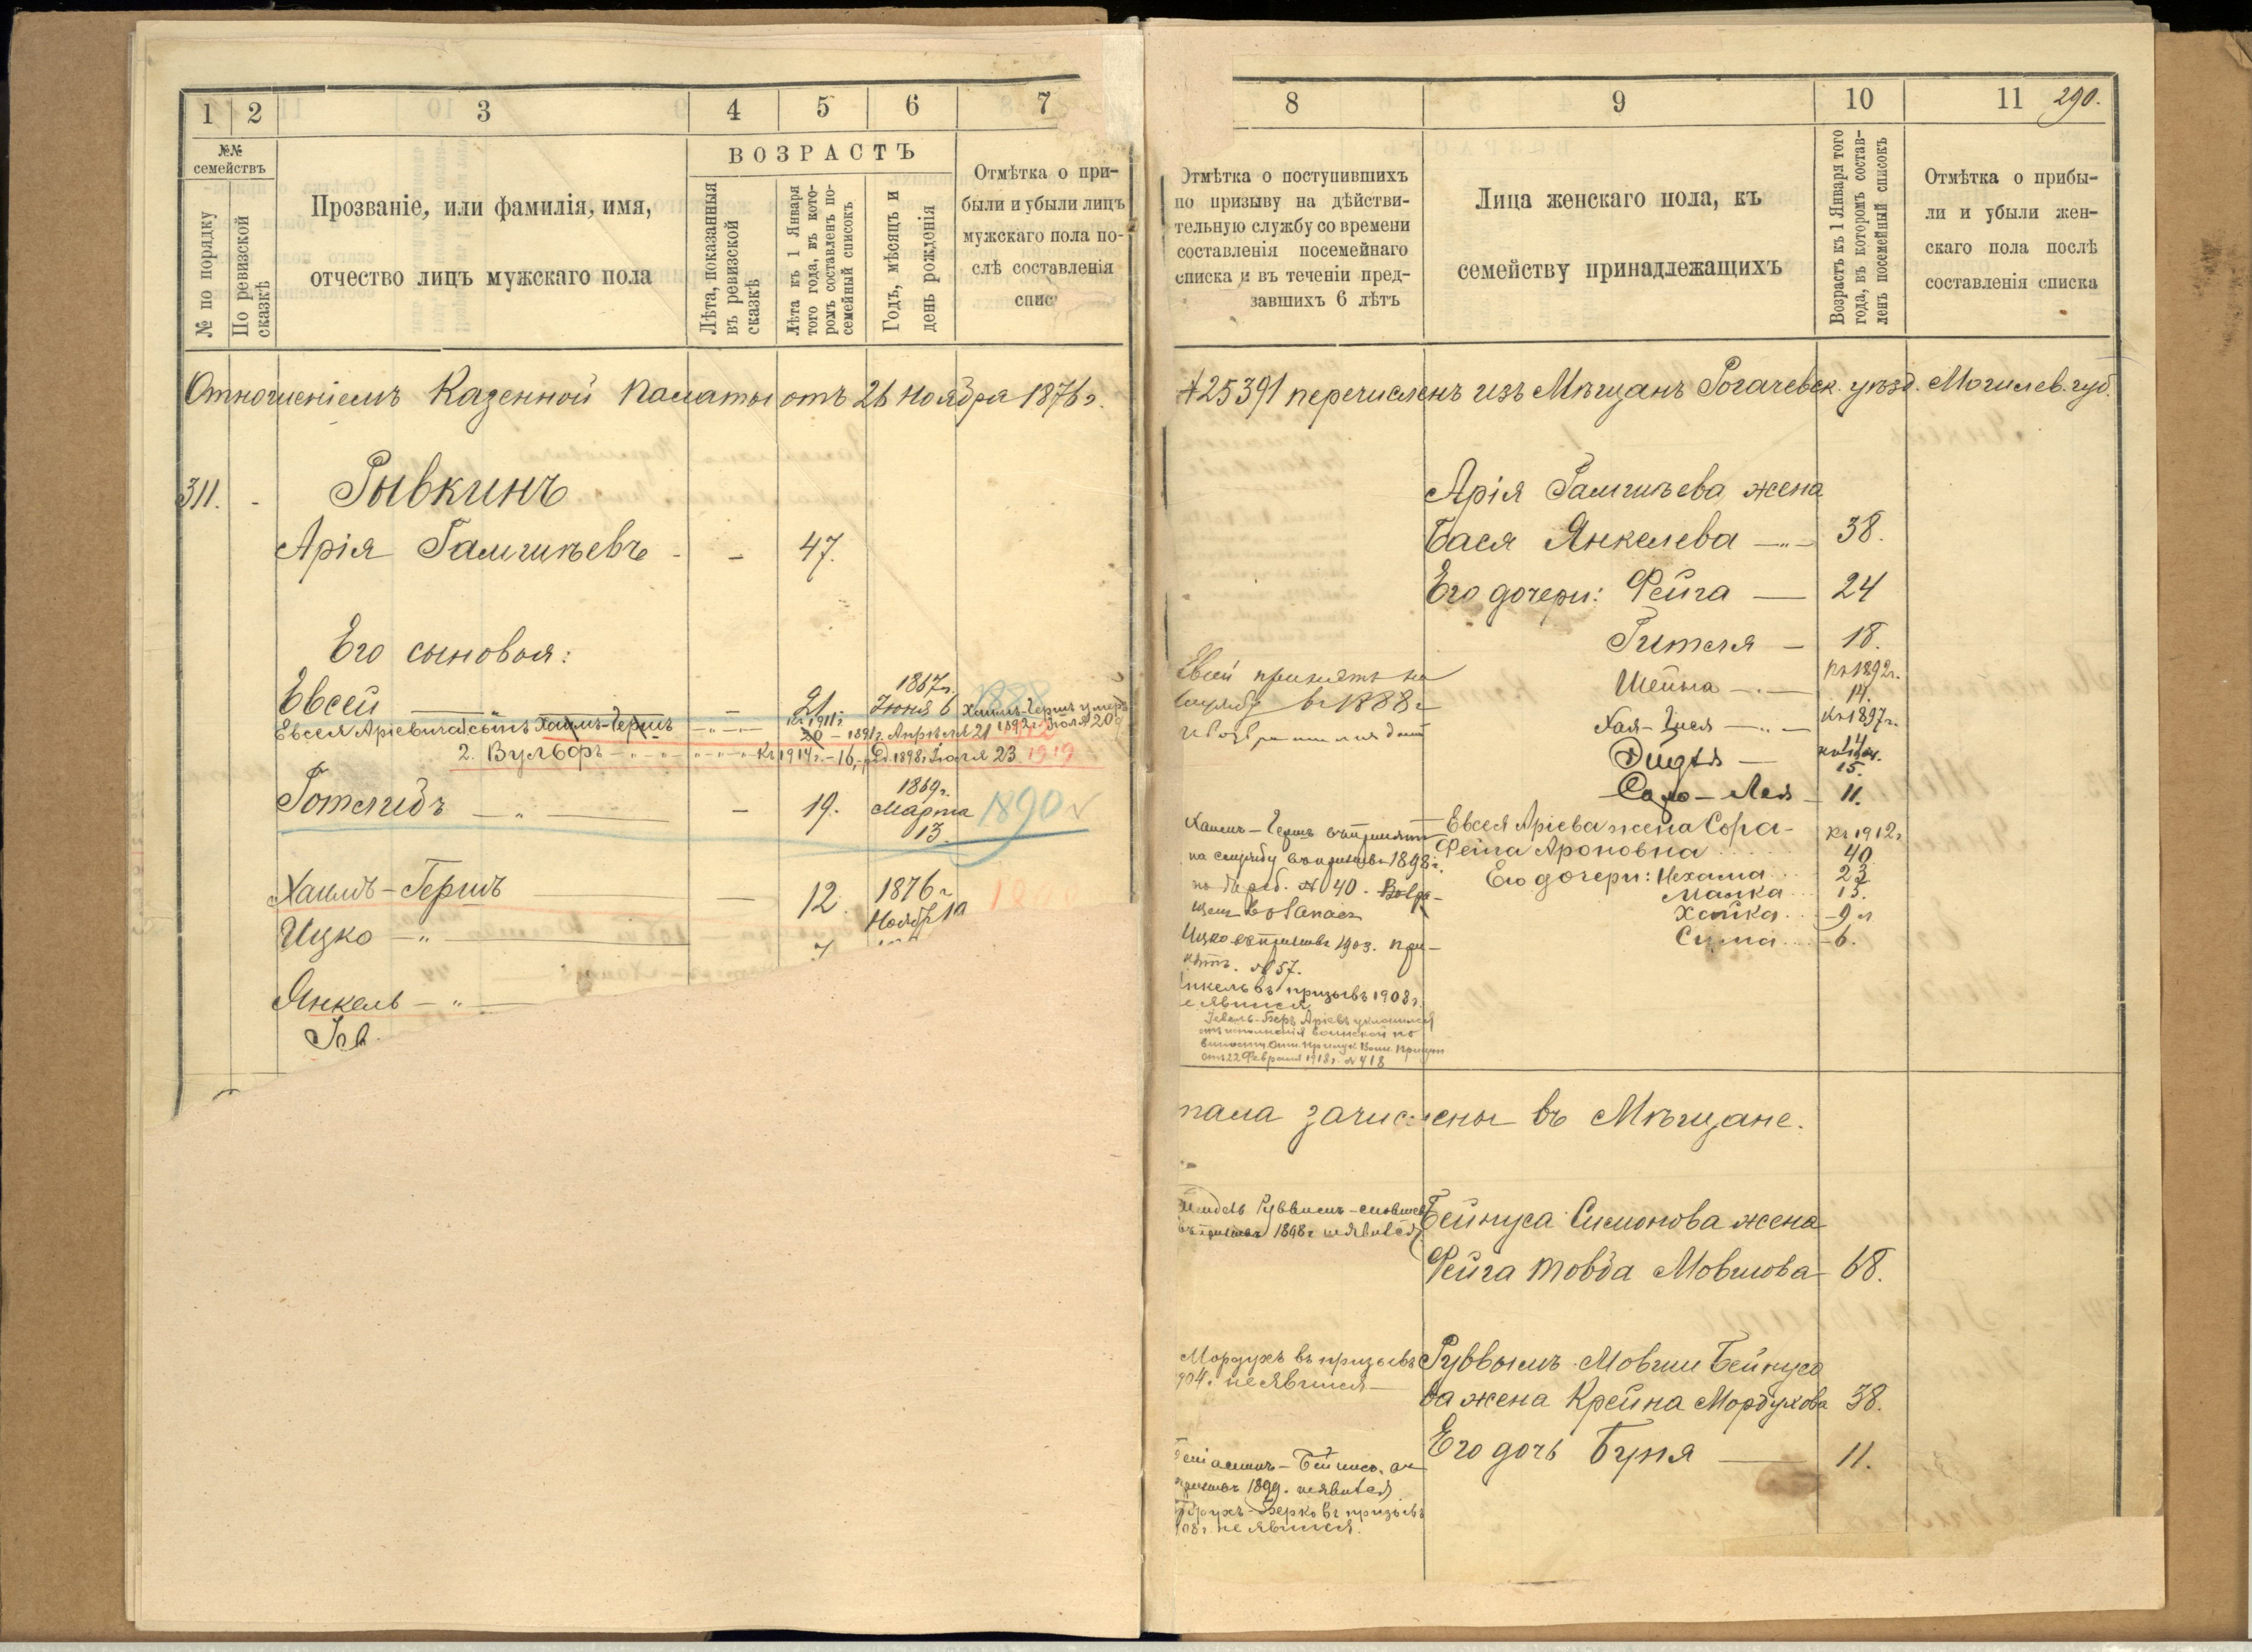 1 2 3 4 5 6 7
№№ семействъ
№ по порядку
По ревизской сказкѣ
Прозваніе, или фамилія, имя,
отчество лицъ мужскаго пола
ВОЗРАСТЪ
Лѣта, показанныя въ ревизской сказкѣ
Лѣта къ 1 Января того года, въ которомъ составленъ посемейный списокъ
Годъ, мѣсяцъ и день рожденія
Отмѣтка о при-
были и убыли лицъ
мужскаго пола по-
слѣ составленія
спис
Отношеніемъ Казенной Палаты отъ 26 Ноября 1876 г.
311. - Рывкинъ
Арія Гамшѣевъ - - 47.
Его сыновья:
Евсей — " — - 21. 1867 г. Іюня 6 1888
Евсея Аріевича сынъ Хаимъ-Гершъ — " — Къ 1911 г. 20 - 1891 г. Апрѣля 21 Хаимъ-Гершъ умеръ 1892 г. Іюля 20
2. Вульфъ — " — Къ 1914 г. - 16, 1898 г. Іюля 23 1919
Готлибъ — " — - 19. 1869 г. Марта 13. 1890
Хаимъ-Гершъ — 12. 1876 г. Ноября
Ицко — " —
Янкель — " —
8 9 10 11 290.
Отмѣтка о поступившихъ
по призыву на дѣйстви-
тельную службу со времени
составленія посемейнаго
списка и въ теченіи пред-
завшихъ 6 лѣтъ
Лица женскаго пола, къ
семейству принадлежащихъ
Возрастъ къ 1 Января того года, въ которомъ составленъ посемейный списокъ
Отмѣтка о прибы-
ли и убыли жен-
скаго пола послѣ
составленія списка
№ 25391 перечисленъ изъ Мѣщанъ Рогачевск. уѣзд. Могилев. губ.
Арія Гамшѣева жена
Бася Янкелева — " — 38.
Его дочери: Фейга — 24
Гителя — 18.
Евсей принятъ на
службу въ 1888 г
Шейна — " — Къ 1892 г. 14.
Хая- — " — Къ 1897 г. 11
15.
Лея — 11.
Хаимъ-Гершъ принятъ
на службу въ призывъ 1898 г.
по № 40.
Евсея Аріева жена Сора- Къ 1912 г
Фейга Ароновна 40
Его дочери: Нехама 23
Малка 13.
Хайка - 9 л
Сима - 6.
Ицко въ призывъ 1903. При-
нятъ. № 57.
нкель въ призывъ 1908 г.
е явился
Беръ Аріевъ уклонился
отъ исполненія воинской по
винности Отн. Присут.
отъ 22 Февраля 1913 г. № 418
пала зачислены въ Мѣщане.
Бейнуса Симонова жена
въ призывъ 1898 г не явился
Фейга Товба Мовшова - 68.
Мордухъ въ призывъ
904 г. не явился
Рувыимъ-Мовши Бейнусо
ва жена Крейна Мордухова 38.
Его дочь Буня — 11.
Беніаминъ-Бейнисъ
призывъ 1899. не явился
Берко въ призывъ
908 г. не явился.